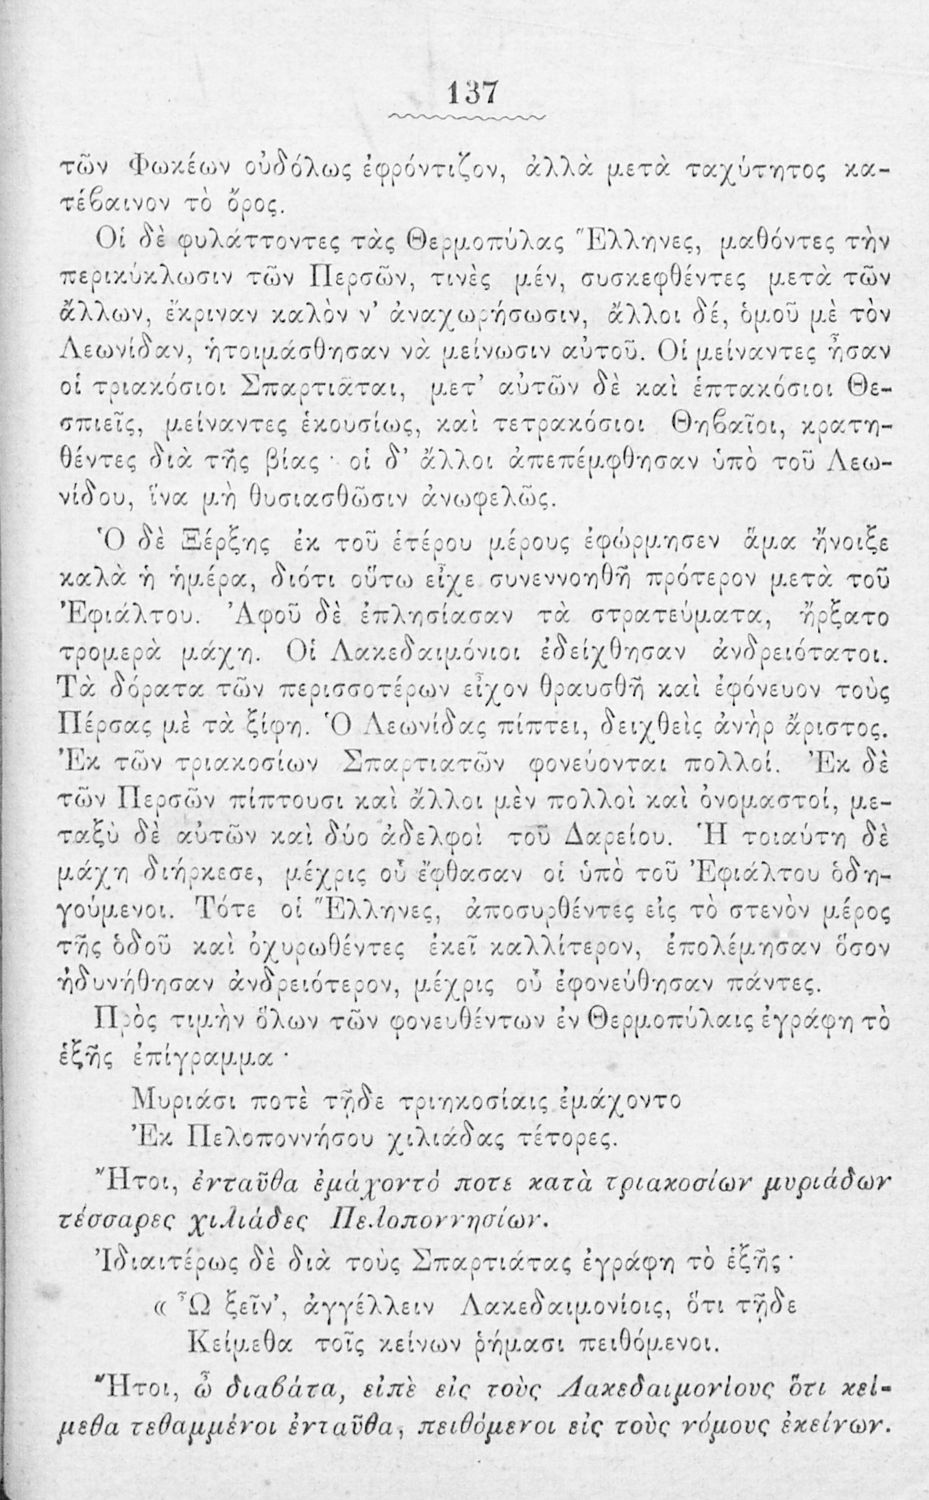 137
τῶν Φωκέων οὐδόλως ἐφρόντιζον, ἀλλὰ μετὰ ταχύτητος κα-
τέβαινον τὸ ὄρος.
Οἱ δὲ φυλάττοντες τὰς Θερμοπύλας Ἕλληνες, μαθόντες τὴν
περικύκλωσιν τῶν Περσῶν, τινὲς μέν, συσκεφθέντες μετὰ τῶν
ἄλλων, ἔκριναν καλὸν ν' ἀναχωρήσωσιν, ἄλλοι δέ, ὁμοῦ μὲ τὸν
Λεωνίδαν, ἡτοιμάσθησαν νὰ μείνωσιν αὐτοῦ. Οἱ μείναντες ἦσαν
οἱ τριακόσιοι Σπαρτιᾶται, μετ' αὐτῶν δὲ καὶ ἑπτακόσιοι Θε-
σπιεῖς, μείναντες ἑκουσίως, καὶ τετρακόσιοι Θηβαῖοι, κρατη-
θέντες διὰ τῆς βίας · οἱ δ' ἄλλοι ἀπεπέμφθησαν ὑπὸ τοῦ Λεω-
νίδου, ἵνα μὴ θυσιασθῶσιν ἀνωφελῶς.
Ὁ δὲ Ξέρξης ἐκ τοῦ ἑτέρου μέρους ἐφώρμησεν ἅμα ἤνοιξε
καλὰ ἡ ἡμέρα, διότι οὕτω εἶχε συνεννοηθῆ πρότερον μετὰ τοῦ
Ἐφιάλτου. Ἀφοῦ δὲ ἐπλησίασαν τὰ στρατεύματα, ἤρξατο
τρομερὰ μάχη. Οἱ Λακεδαιμόνιοι ἐδείχθησαν ἀνδρειότατοι.
Τὰ δόρατα τῶν περισσοτέρων εἶχον θραυσθῆ καὶ ἐφόνευον τοὺς
Πέρσας μὲ τὰ ξίφη. Ὁ Λεωνίδας πίπτει, δειχθεὶς ἀνὴρ ἄριστος.
Ἐκ τῶν τριακοσίων Σπαρτιατῶν φονεύονται πολλοί. Ἐκ δὲ
τῶν Περσῶν πίπτουσι καὶ ἄλλοι μὲν πολλοὶ καὶ ὀνομαστοί, με-
ταξὺ δὲ αὐτῶν καὶ δύο ἀδελφοὶ τοῦ Δαρείου. Ἡ τοιαύτη δὲ
μάχη διήρκεσε, μέχρις οὗ ἔφθασαν οἱ ὑπὸ τοῦ Ἐφιάλτου ὁδη-
γούμενοι. Τότε οἱ Ἕλληνες, ἀποσυρθέντες εἰς τὸ στενὸν μέρος
τῆς ὁδοῦ καὶ ὀχυρωθέντες ἐκεῖ καλλίτερον, ἐπολέμησαν ὅσον
ἠδυνήθησαν ἀνδρειότερον, μέχρις οὗ ἐφονεύθησαν πάντες.
Πρὸς τιμὴν ὅλων τῶν φονευθέντων ἐν Θερμοπύλαις ἐγράφη τὸ
ἑξῆς ἐπίγραμμα ·
Μυριάσι ποτὲ τῇδε τριηκοσίαις ἐμάχοντο
Ἐκ Πελοποννήσου χιλιάδας τέτορες.
Ἤτοι, ἐνταῦθα ἐμάχοντό ποτε κατὰ τριακοσίων μυριάδων
τέσσαρες χιλιάδες Πελοποννησίων.
Ἰδιαιτέρως δὲ διὰ τοὺς Σπαρτιάτας ἐγράφη τὸ ἑξῆς ·
« Ὦ ξεῖν', ἀγγέλλειν Λακεδαιμονίοις, ὅτι τῇδε
Κείμεθα τοῖς κείνων ῥήμασι πειθόμενοι.
Ἤτοι, ὦ διαβάτα, εἰπὲ εἰς τοὺς Λακεδαιμονίους ὅτι κεί-
μεθα τεθαμμένοι ἐνταῦθα, πειθόμενοι εἰς τοὺς νόμους ἐκείνων.